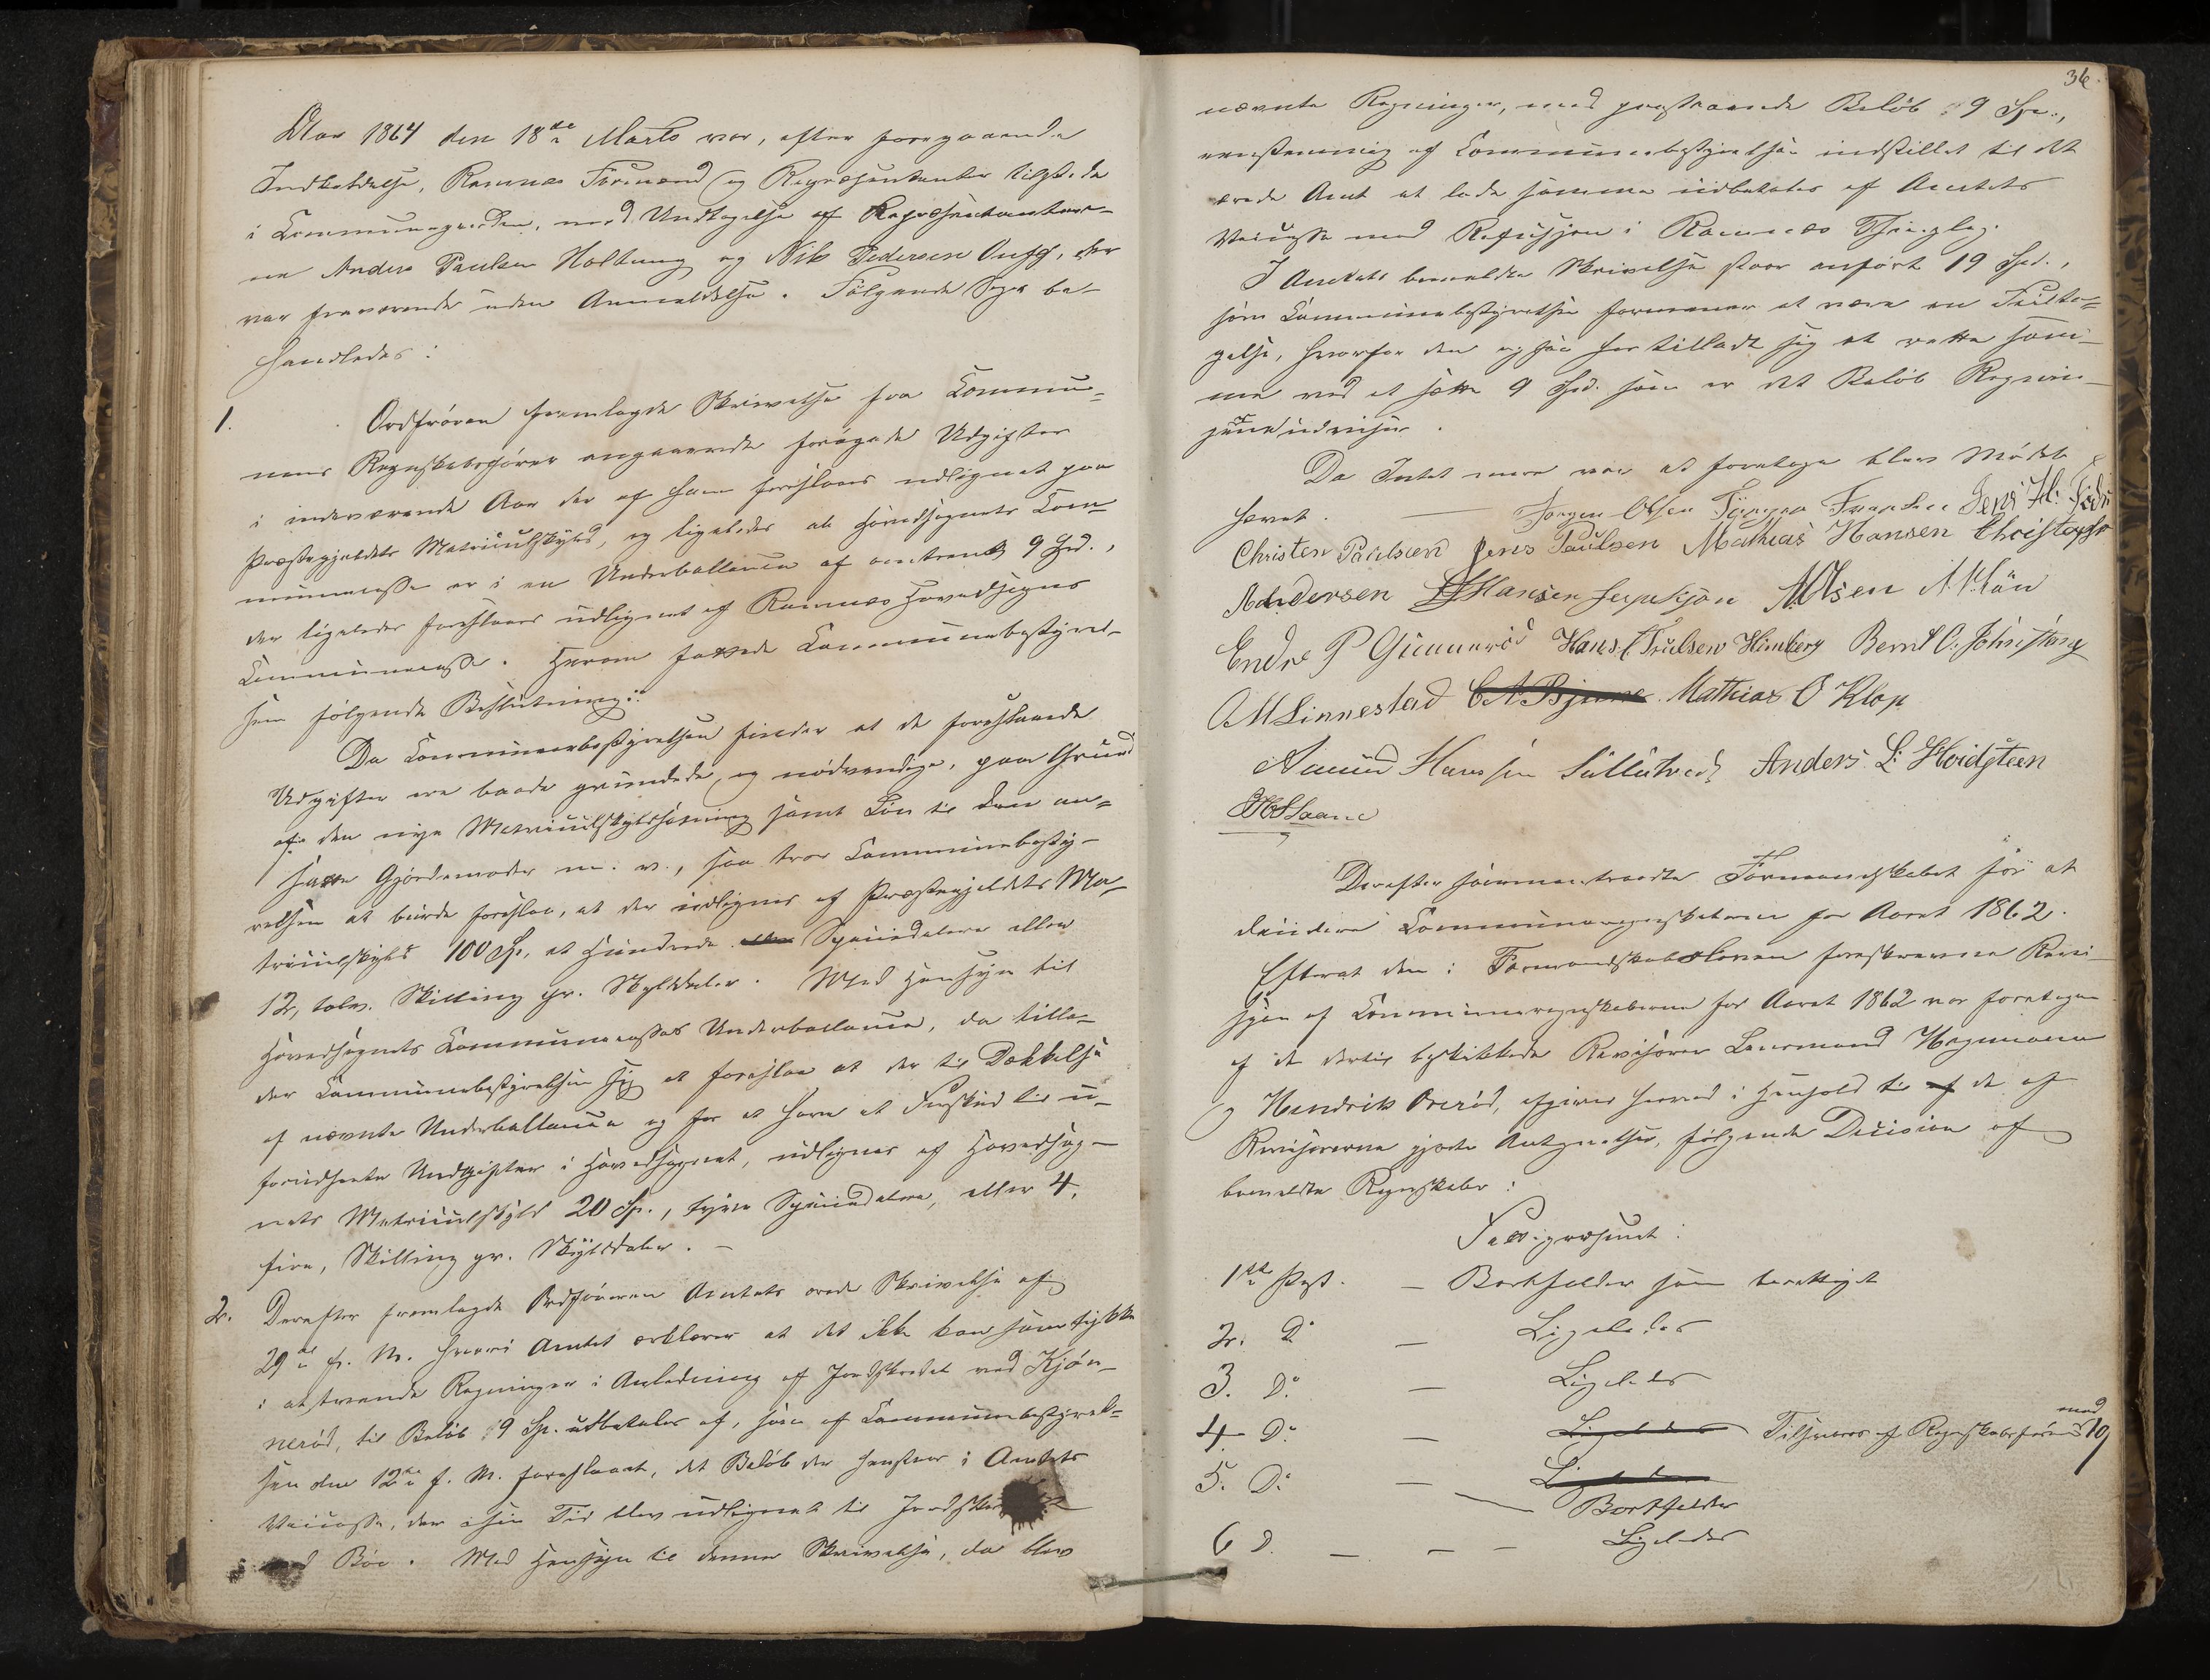 Aar 1864 den 18de Marts var, efter foregaaende
Indkaldelse, Ramnæs Formænd og Repræsentanter tilstede
i Communegaarden, med Undtagelse af Repræsentanter-
ne Anders Paulsen Holtung og Nils Pedersen, der
var fraværende uden Anmeldelse. Følgende Sager be-
handledes:
1. Ordføreren fremlagde Skrivelse fra Commu-
nens Regnskabsfører angaaende forøgede Udgifter
i indeværende Aar der af ham foreslaaes udlignet paa
Præstegjeldets Matriculskyld, og ligeledes at Hovedsognets Com-
munecasse er i en Underballance af omtrent 9 Spd.,
der ligeledes foreslaaes udlignet af Ramnæs Hovedsogns
Communecasse. Herom fattede Communebestyrel-
sen følgende Beslutning:
Da Communebestyrelsen finder at de foreslaaede
Udgifter ere baade grundede og nødvendige, paa Grund
af den nye Matriculskyldsætning samt Løn til den an-
satte Gjordemoder m. v., saa tror Communebesty-
relsen at burde foreslaa, at der udlignes af Præstegjeldets Ma-
triculskyld 100 Sp., et Hundrede Speciedalere eller
12, tolv. Skilling pr. Skylddaler. Med Hensyn til
Hovedsognets Communecasses Underballance, da tilla-
der Communebestyrelsen sig at foreslaa at der til Dækkelse
af nævnte Underballance og for at have et Forskud til u-
forudseete Undgifter i Hovedsognet, udlignes af Hovedsog-
nets Matriculskyld 20 Sp., tyve Speciedalere, eller 4,
fire, Skilling pr. Skylddaler. –
2. Derefter fremlagde Ordføreren Amtets ærede Skrivelse af
29de f. M. hvori Amtet erklærer at det ikke kan samtykke
i at tvende Regninger i Anledning af Jordskredet ved Kjøn-
nerød, til Beløb 9 Sp. udbetales af, som af Communebestyrel-
sen den 12te f. M. foreslaaet, det Beløb der henstaar i Amtets
Veicasse, der i sin Tid blev udlignet til
Bøe. Med Hensyn til denne Skrivelse, da blev
36.
nævnte Regninger, med paastaaende Beløb 9 Spd.,
eenstemmig af Communebestyrelsen indstillet til det
ærede Amt at lade samme udbetales af Amtets
Veicasse med Refusjon i Ramnæs Thinglag.
I Amtets bemeldte Skrivelse staar anført 19 Spd.,
som Communebestyrelsen formener at være en Feilta-
gelse, hvorfor den ogsaa har tilladt sig at rette sam-
me ved at sætte 9 Spd. som er det Beløb Regnin-
gerne udviser.
Da Intet mere var at foretage blev Mødet
hævet.
Jørgen Olsen Jens H.
Christen Paulsen Jens Paulsen Mathias Hansen Christopher
Andersen Hansen A Olsen
Endre P Gunnerød Hans C Trulsen Himberg Bernt O.
O M Linnestad C A Bjune. Mathias O Klop
Amund Hansen Anders L. Hvidsteen
Derefter sammentraadte Formandskabet for at
decidere Communeregnskaberne for Aaret 1862.
Efterat den i Formandskabsloven foreskrevne Revi-
sjon af Communeregnskaberne for Aaret 1862 var foretagen
af de dertil beskikkede Revisorer Lensmand Wegmann
og Hendrik Orerød, afgives herved i Henhold til de af
Revisorerne gjorte Antegnelser, følgende Decision af
bemeldte Regnskaber:
1ste Post. – Bortfalder som berettiget
2. Do – Ligeledes
3. Do – Ligeledes
4 Do – Ligeledes Tilsvares af Regnskabsføreren med 19
5. Do – Ligeledes
– Bortfalder
6 D. – – – Ligeledes